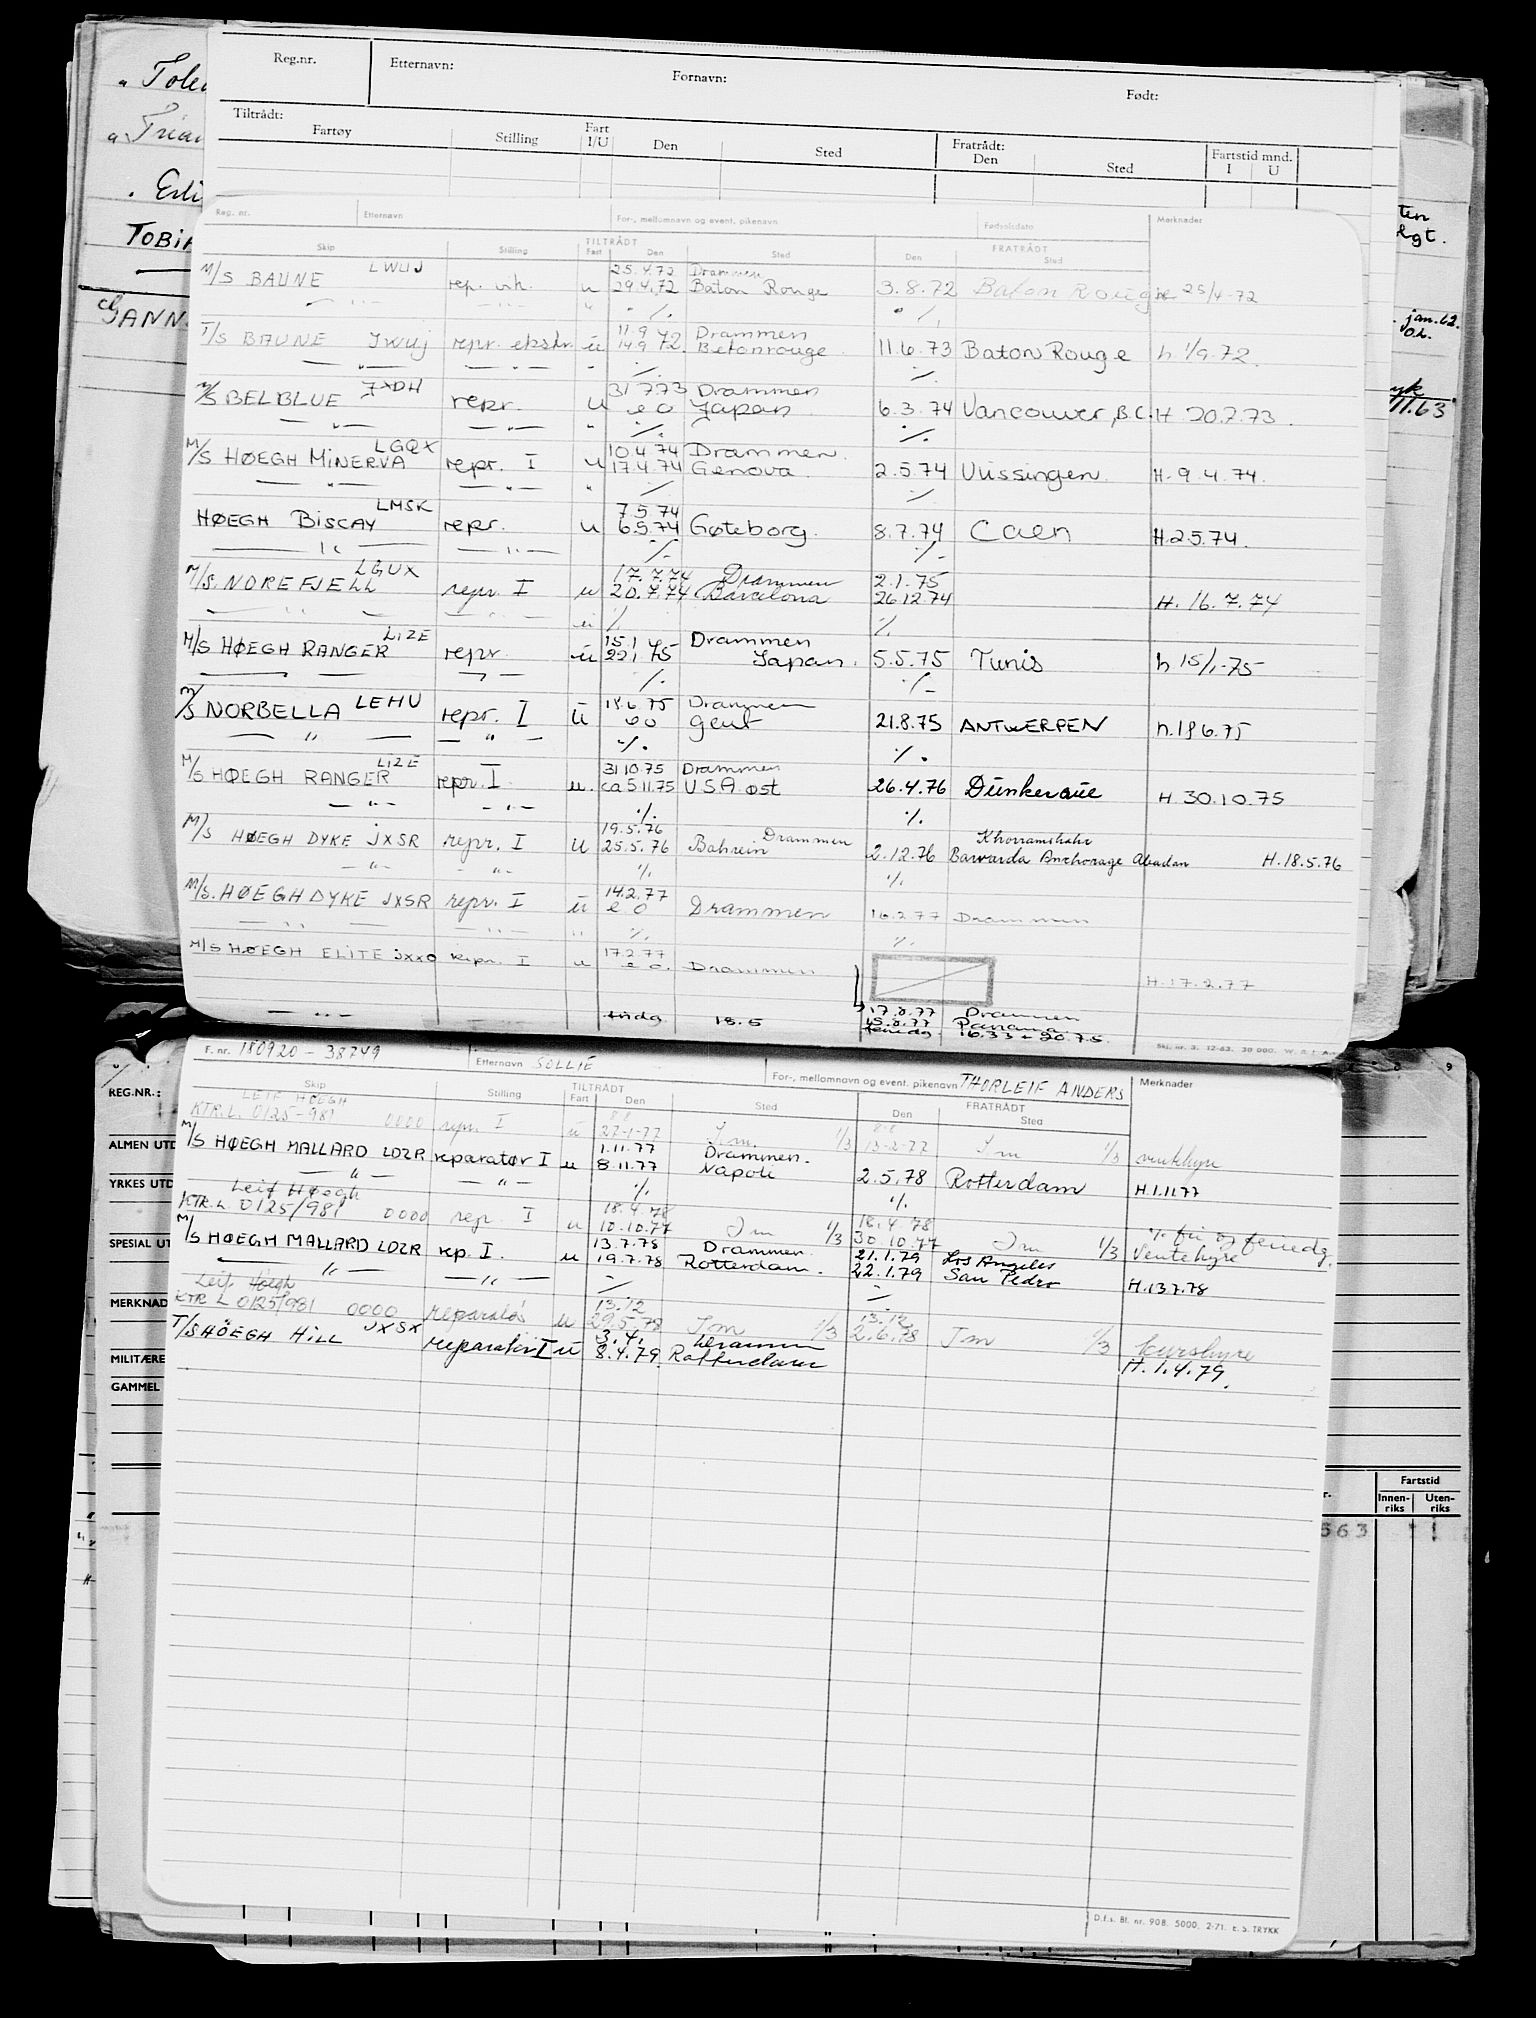 Reg.nr. Etternavn: Fornavn: Født:
Tiltrådt: Fratrådt:
Fartøy Stilling Fart I/U Den Sted Den Sted Fartstid mnd. I U
TOBIA
Reg. nr. Etternavn For-, mellomnavn og event. pikenavn Fødselsdato Merknader
TILTRÅDT FRATRÅDT
Skip Stilling Fart Den Sted Den Sted
LWUJ 25.4.72 Drammen
M/S BAUNE rep. vik. u 29.4.72 Baton Rouge 3.8.72 Baton Rouge 25/4-72
— " — — " — " ٪ ٪
11.9 72 Drammen
T/S BAUNE JWUJ repr. ekstr. ü 14.9 72. Betonrouge 11.6.73 Baton Rouge h. 1/9.72.
— " — — " — ٪ ٪
JXDH 31 7 73 Drammen
M/S BELBLUE repr. u e o Japan 6.3.74 Vancouver, B.C. H 20.7.73.
— " — — " — " ٪ ٪
LGQX 10.4.74 Drammen.
M/S HØEGH MINERVA repr. I u 17.4.74 Genova. 2.5.74 Vlissingen H. 9.4.74.
— " — — " — " ٪ ٪
LMSK 7.5.74
HØEGH BISCAY repr. u 6.5.74 Gøteborg. 8.7.74 Caen H.2.5.74.
— " — — " — ٪ ٪
LGUX 17.7.74 Drammen 2.1.75
M/S. NOREFJELL repr. I u 20.7.74 Barcelona 26.12.74 H. 16.7.74
— " — — " — u ٪ ٪
LIZE 15.1 75 Drammen
M/S HØEGH RANGER repr. ü 22.1 75 Japan. 5.5.75 Tunis h 15/1-75
— " — ٪ ٪
LEHU 18.6 75 Drammen
M/S NORBELLA repr. I ü e o Gent 21.8.75 ANTWERPEN h.18 6.75
— " — — " — ٪ ٪
LIZE 31 10.75 Drammen
M/S HØEGH RANGER repr. I. u. ca 5.11.75 USA øst 26.4.76 Dünkerque H 30.10.75
— " — — " — ٪ ٪
19.5.76 Drammen Khorramshahr
M/S HØEGH DYKE JXSR repr. I u 25.5.76 Bahrein 2.12.76 Bawarda Anchorage Abadan H.18.5.76
— " — — " — ٪ ٪
14.2.77
M/S. HØEGH DYKE JXSR repr. I ü e o Drammen 16.2.77 Drammen
— " — — " — " ٪ ٪
17.2.77
M/S HØEGH ELITE JXXO repr. I u e o. Drammen H.17.2.77
17.8.77 Drammen
15.8.77 Panama
— " — 18.5
Skj. nr. 3. 12-63. 30 000.
F. nr. 180920 - 38749 Etternavn SOLLIE For-, mellomnavn og event. pikenavn THORLEIF ANDERS Merknader
TILTRÅDT FRATRÅDT
Skip Stilling Fart Den Sted Den Sted
LEIF HØEGH 8.8 8.8
KTR.L. 0125-981 0000 repr. I ü 27-1-77 Jm 1/3 13-2-77 Jm 1/3 ventehyre
1.11.77 Drammen.
M/S HØEGH MALLARD LDZR reparatør I u 8.11.77 Napoli 2.5.78 Rotterdam H.1.11.77
— " — — " — ٪ ٪
Leif Høegh 18.4.78 18.4.78
KTR.L. 0125/981 0000 rep. I u 10.10.77 Jm 1/3 30.10.77 Jm 1/3 Ventehyre
13.7.78 Drammen. 21.1.79 Los Angeles
M/S HØEGH MALLARD LDZR rep. I. u 19.7.78 Rotterdam. 22.1.79 San Pedro H.13.7.78
— " — — " —
Leif Høegh 13.12 13.12
KTR L 0125/981 0000 reparatør u 29.5.78 Jm 1/3 2.6.78 Jm 1/3 kurshyre
3.4. Drammen
T/S HÖEGH HILL JXSX reparatør I ü 8.4.79. Rotterdam H. 1.4.79.
REG.NR.:
ALMEN UTD
YRKES UTD
SPECIAL UT
MERKNAD
MILITÆRE
GAMMEL
Fartstid
Innen-riks Uten-riks
563
D.f.s. Bl. nr. 908. 5000. 2-71. E. S. TRYKK